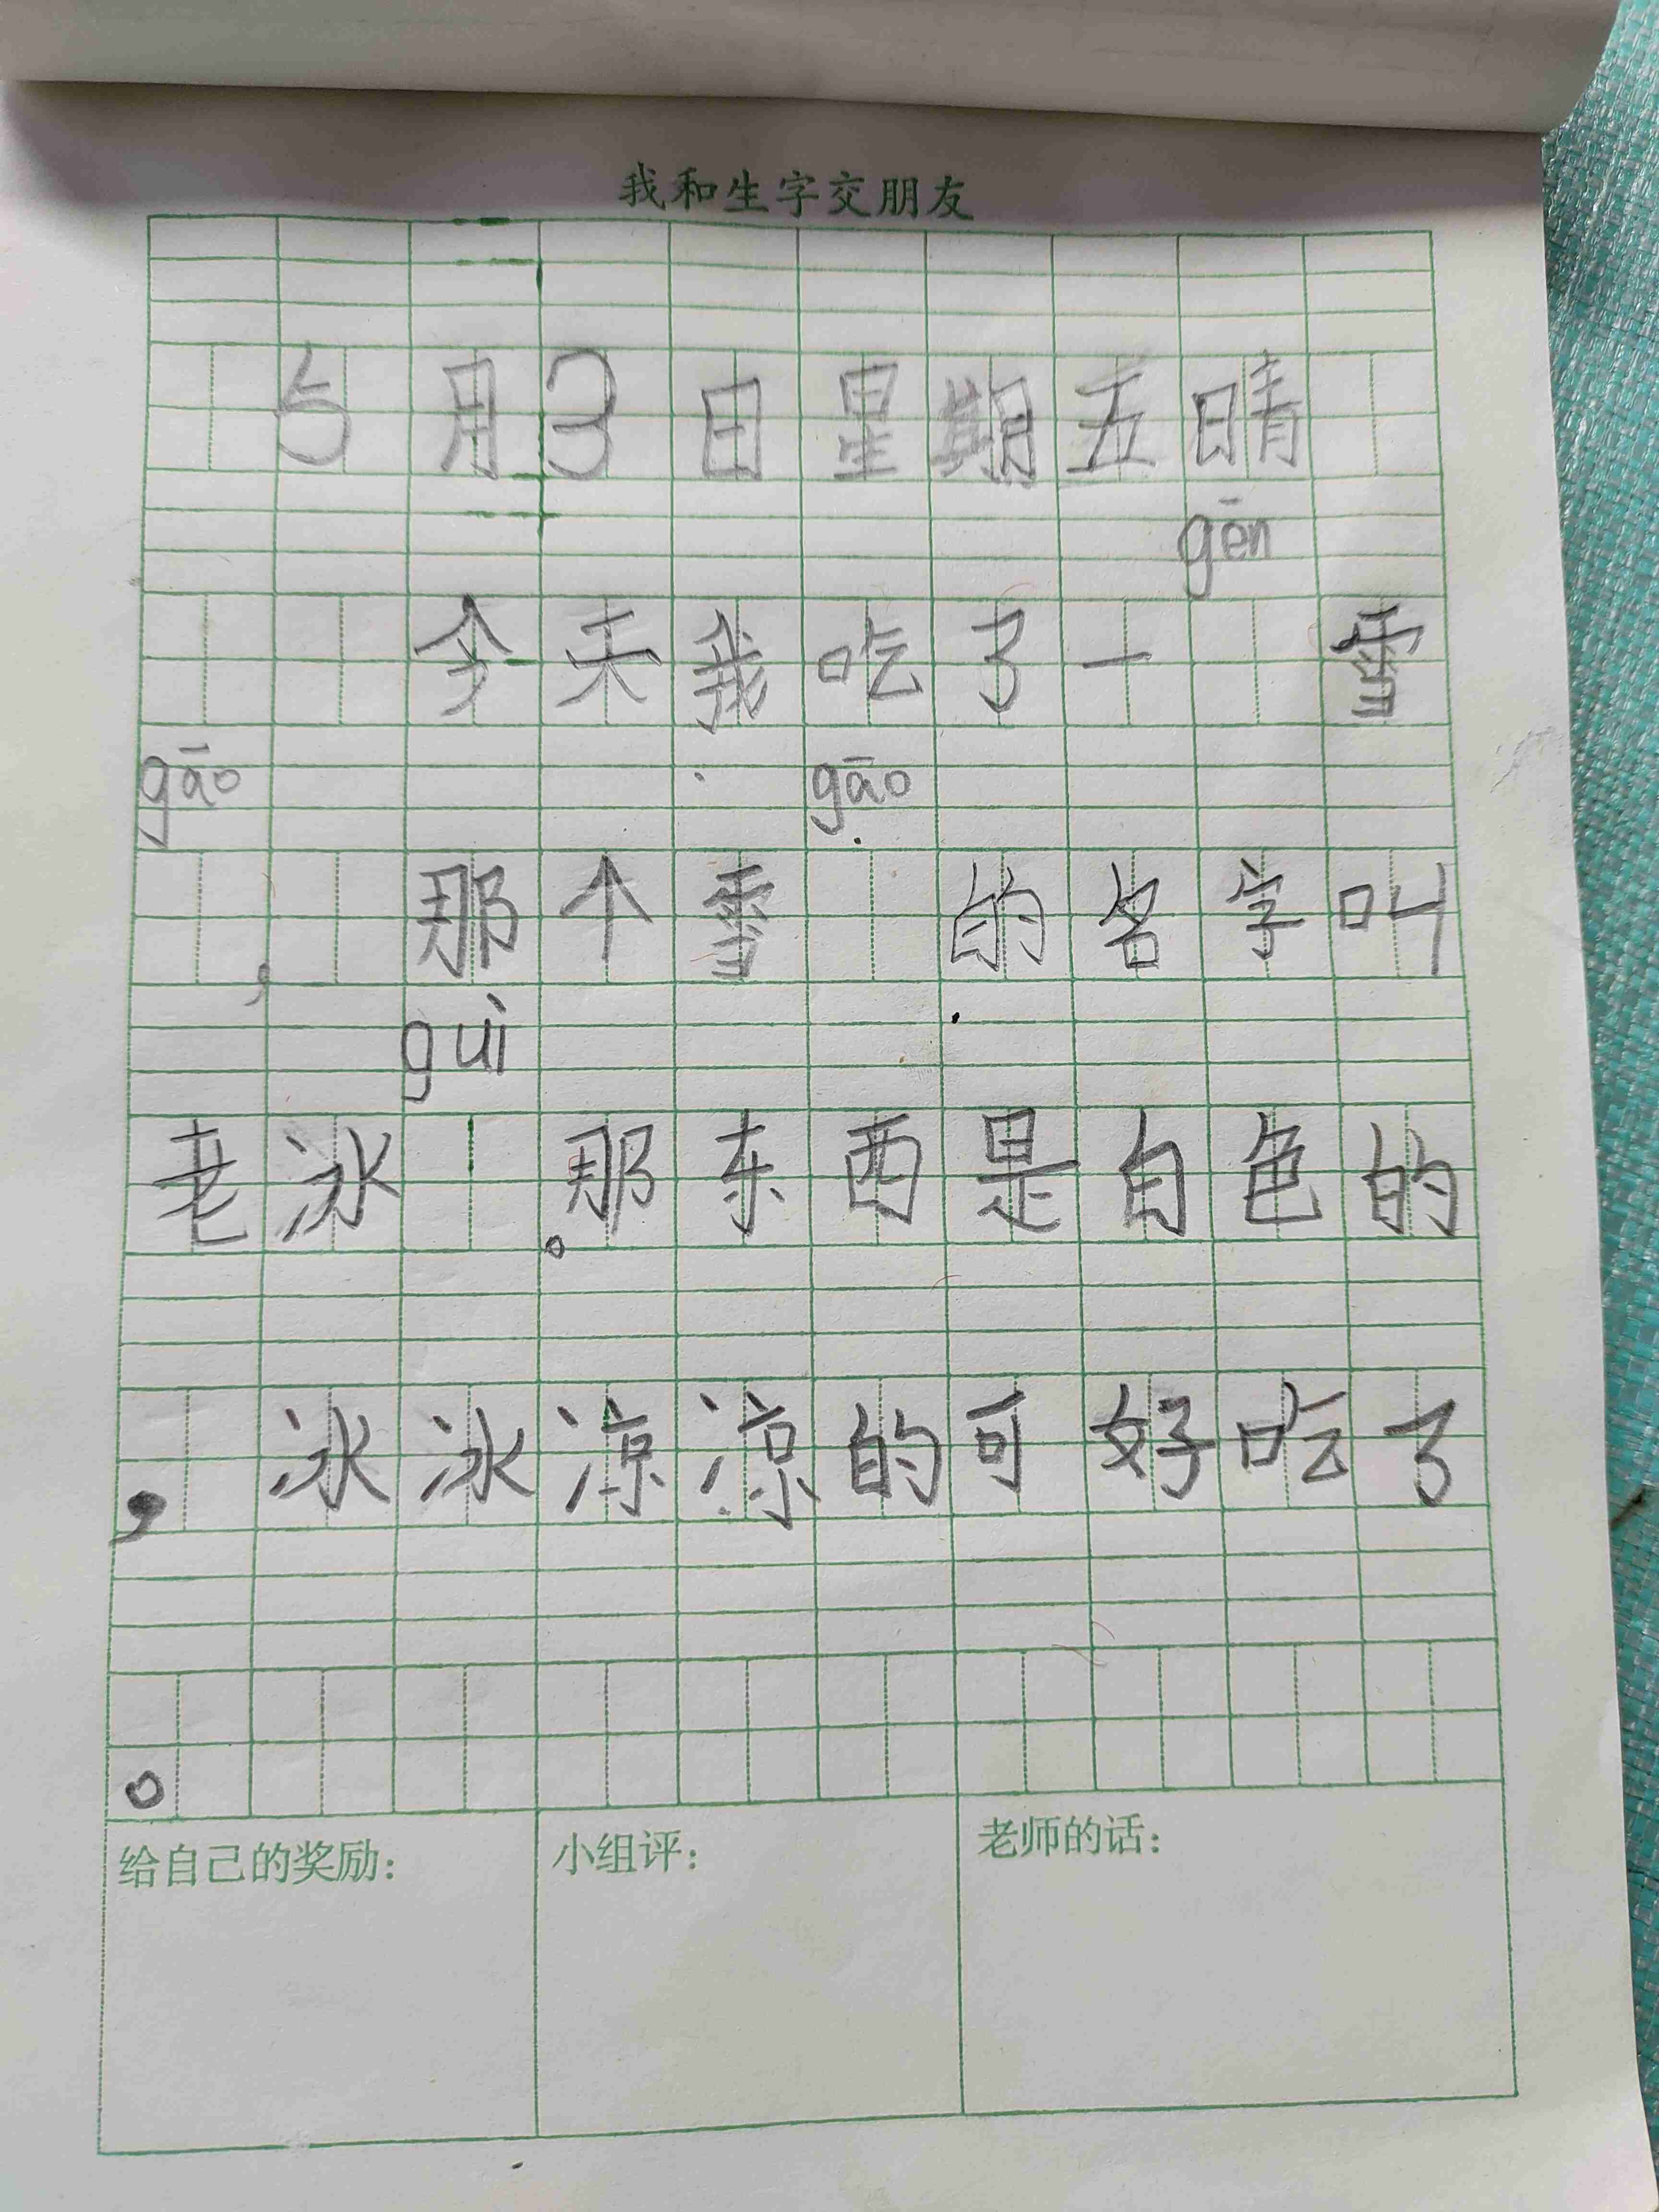 我和生字交朋友
5月3日星期五晴
gēn
今天我吃了一 雪
gāo gāo
, 那个雪 的名字叫
guì
老冰 。那东西是白色的
,冰冰凉凉的可好吃了
。
给自己的奖励: 小组评: 老师的话: